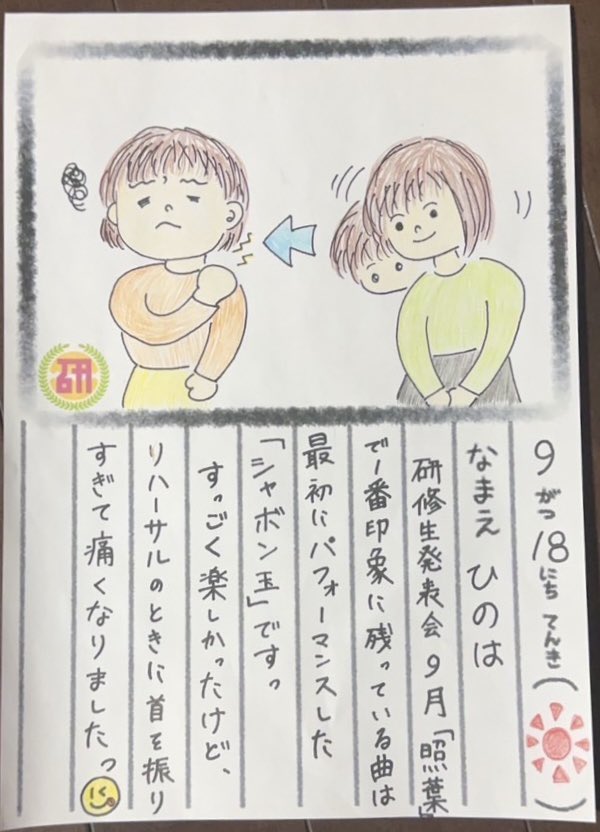 9がつ18にち てんき( )
なまえ ひのは
研修生発表会 9月「照葉」
で1番印象に残っている曲は
最初にパフォーマンスした
「シャボン玉」ですっ
すっごく楽しかったけど、
リハーサルのときに首を振り
すぎて痛くなりましたっ
研